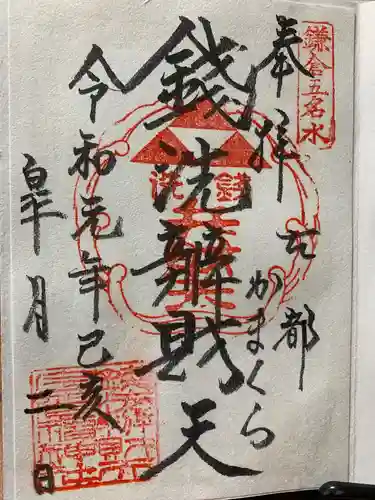 鎌倉五名水
奉拝
古都
かまくら
銭洗辨財天
銭洗
令和元年己亥
皐月
二日